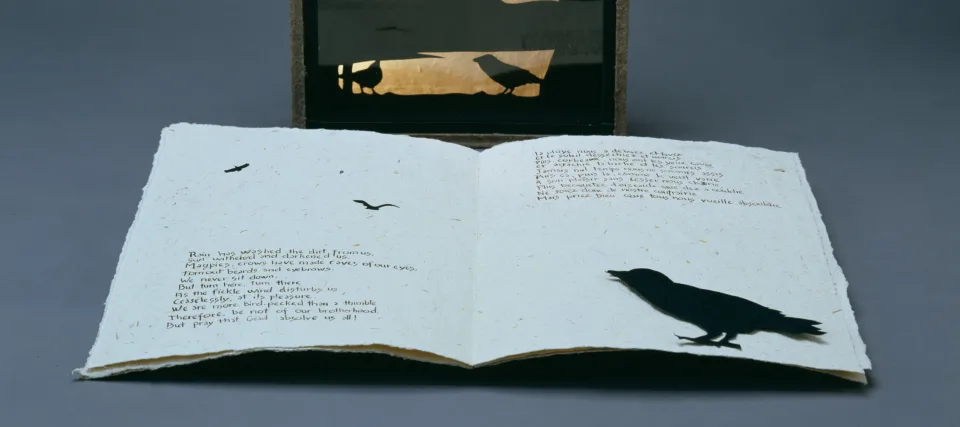 Rain has washed the dirt from us,
Sun withered and darkened us
Magpies, crows have made caves of our eyes,
Torn out beards and eyebrows.
We never sit down.
But turn here, turn there
As the fickle wind disturbs us
Ceaselessly, at its pleasure
We are more bird-pecked than a thimble
Therefore, be not of our brotherhood,
But pray that God absolve us all!
nous a
Et le soleil
nous ont les yeux
Et la barbe et les
Jamais nul temps nous ne sommes assis
Puis ça, puis la comme le vent varie
A son plaisir sans cesser nous
Plus que dez a
Ne donc de nostre confrairie
Mais priez Dieu que tous nous vueille